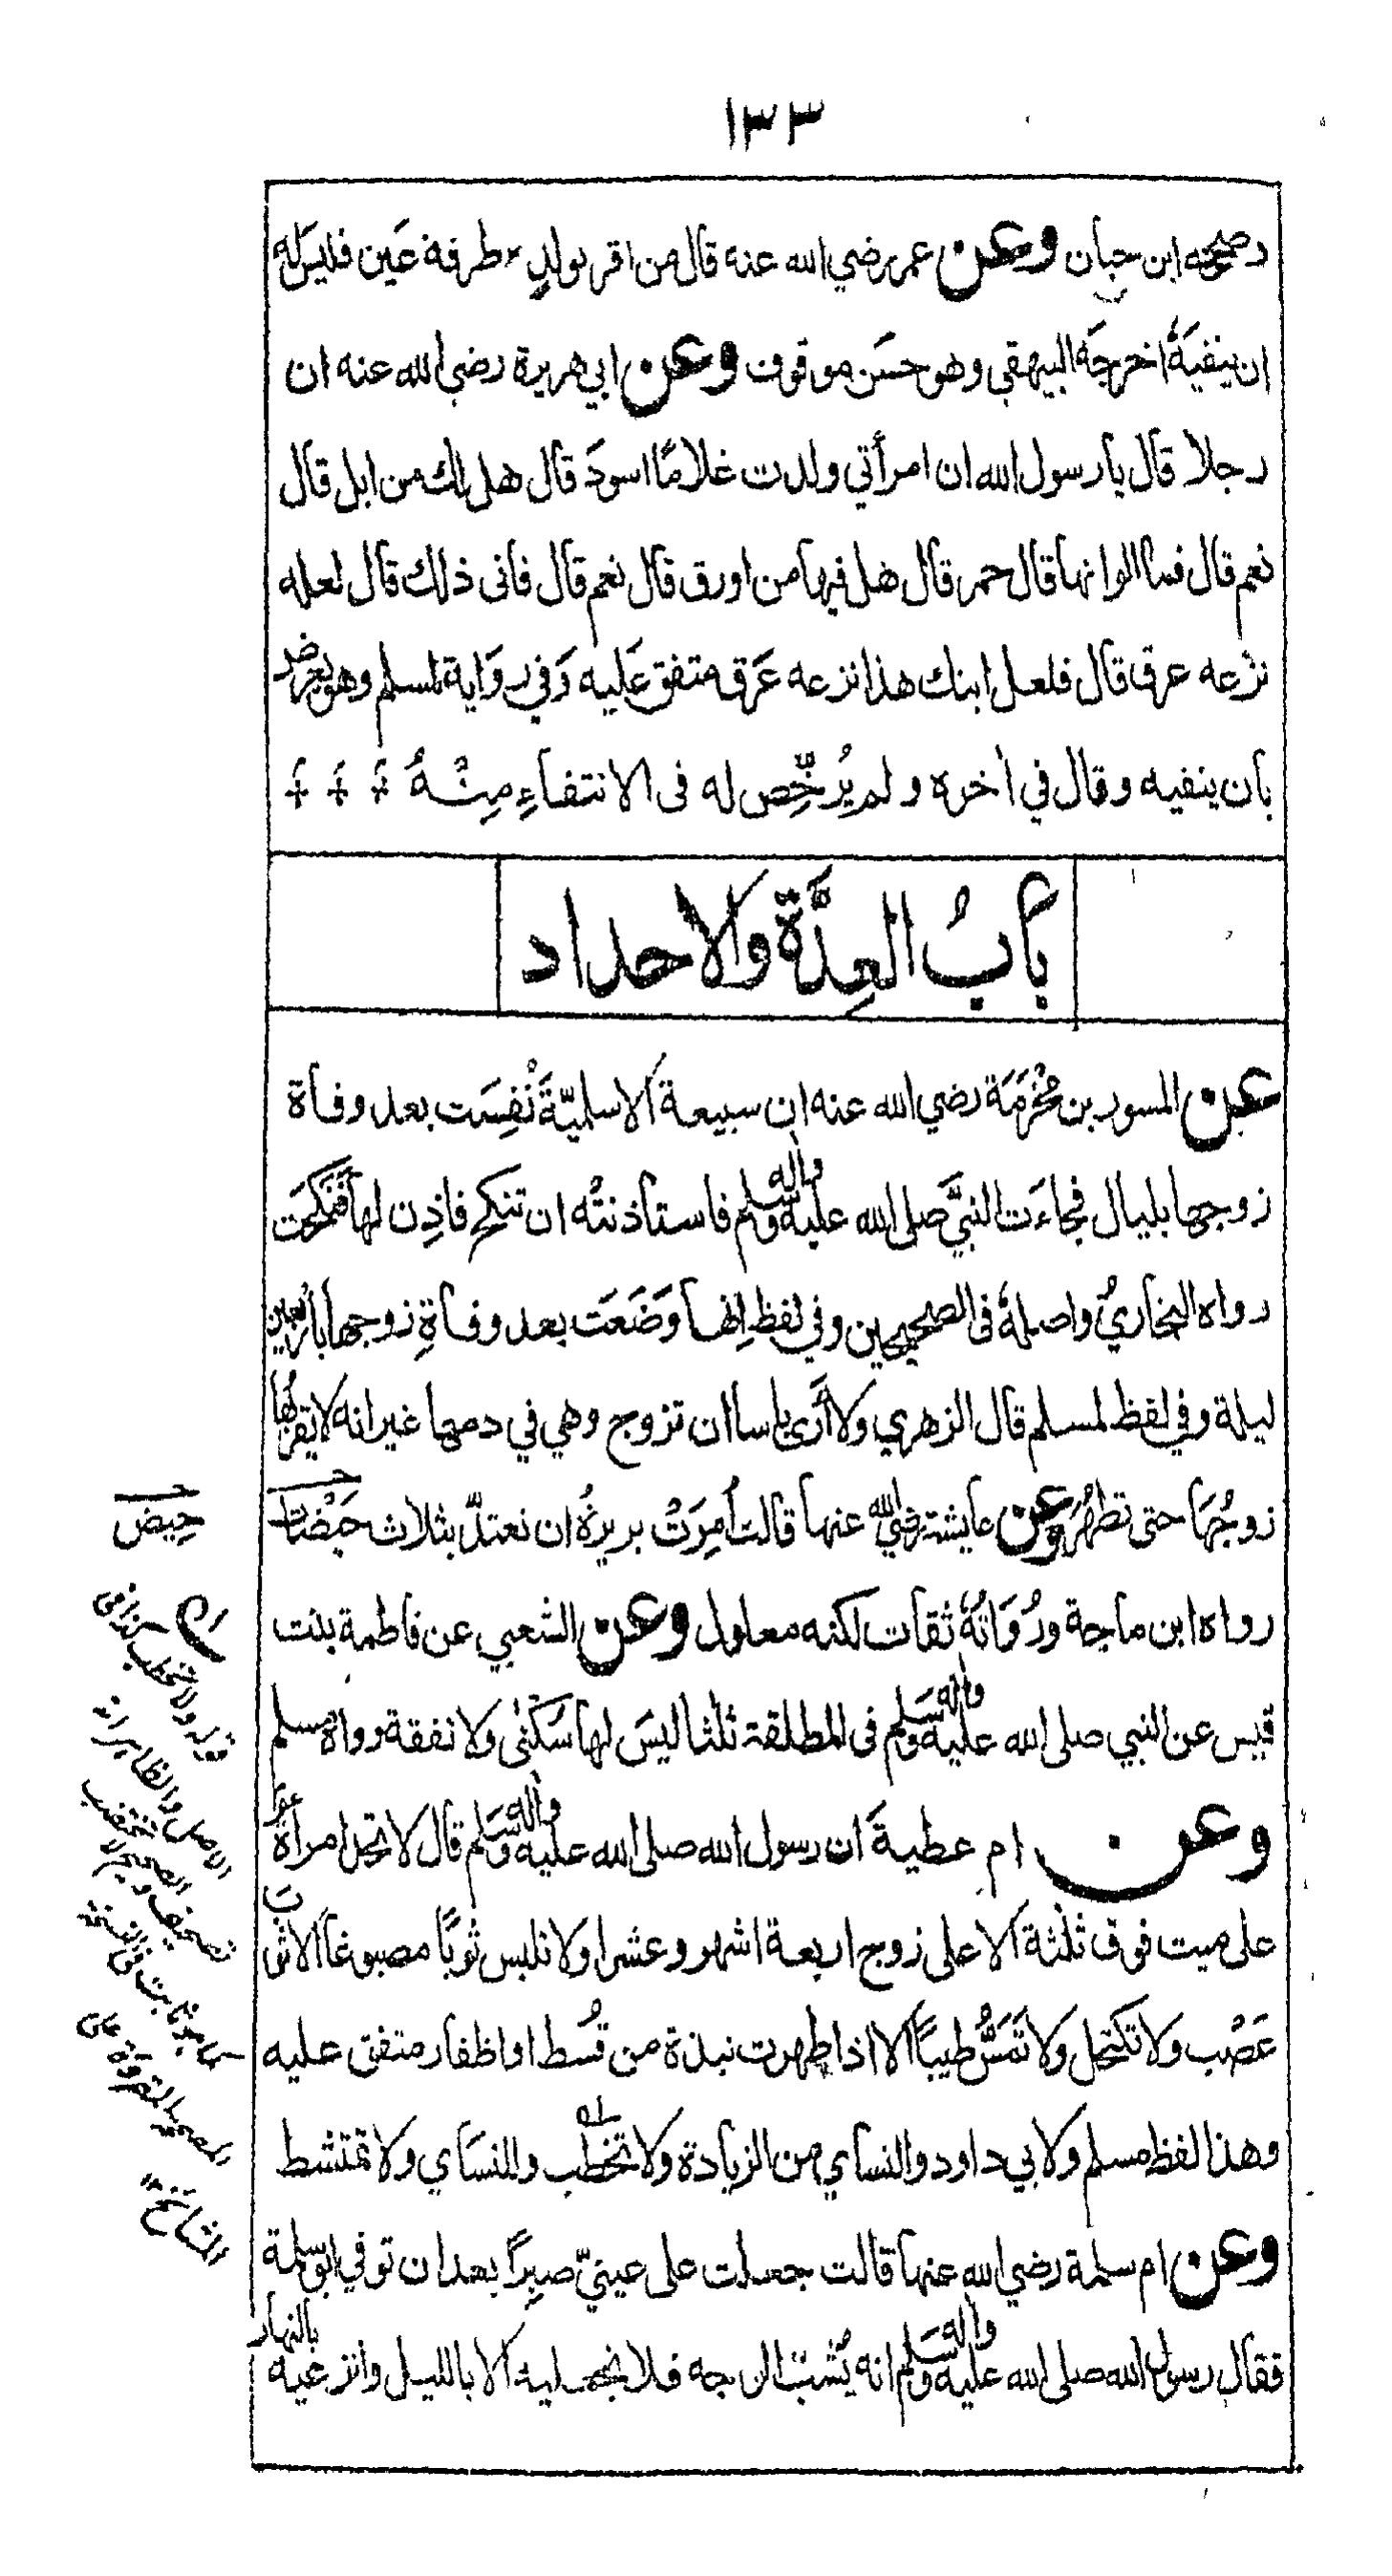 ١٣٣
وصححه ابن حبان وعن عمر رضي الله عنه قال من اقر بولدٍ طرفة عَين فليسَ له
ان ينفيَهٗ اخرجَه البيهقى وهو حسَن موقوف وعن ابي هريرة رضى الله عنه ان
رجلا قال يا رسول الله ان امرأتي ولدت غلامًا اسودَ قال هل لك من ابل قال
نعم قال فما الوانها قال حمر قال هل فيها من اورق قال نعم قال فانى ذلك قال لعله
نزعه عرق قال فلعل ابنك هذا نزعه عَرق متفق عَليه وَفي روَاية لمسلم وهو يعرض
بان ينفيه وقال في اٰخره ولم يُرخِّص له فى الانتفاءِ مِنْهُ
بَابُ العِدَّة والاحداد
عن المسور بن مَخْرَمَة رضي الله عنه ان سبيعة الاسلميّةَ نُفِسَت بعد وفاة
زوجها بليال فجاءَت النبيَّ صلى الله عليه واٰله وسلم فاستأذنتْه ان تنكح فاذِن لها فنَكَحَت
رواه البخاريُّ واصلهٗ فى الصحيحين وفي لفظِ انها وَضَعَت بعد وفاةِ زوجها باربعين
ليلة وفي لفظ لمسلم قال الزهري ولا أرَى باسا ان تزوج وهي في دمها غير انه لا يقربُها
زوجُهَا حتى تطهُرَ وعن عايشة رضي الله عنها قالت اُمِرَتْ بريرةُ ان تعتدّ بثلاث حَيْضات
رواه ابن ماجة ورُوَاتُهٗ ثقات لكنه معلول وعن الشعبي عن فاطمة بنت
قيس عن النبي صلى الله عليه واٰله وسَلم فى المطلقة ثلثا ليسَ لها سَكنٰى ولا نفقة رواه مسلم
وعن ام عطيةَ ان رسول الله صلى الله عليه واٰله وسلم قال لا تحل امرأة
على ميت فوق ثلثة الا على زوج اربعة اشهر وعشرا ولا تلبس ثوبًا مصبوغاً الا ثوبَ
عَصْب ولا تكتحل ولا تَمَسُّ طيبًا الا اذا طهرت نبذة من قُسط او اظفار متفق عليه
وهذا لفظ مسلم ولابي داود والنساي من الزيادة ولا تخطب وللنسَاي ولا تمتشط
وعن ام سلمة رضي الله عنها قالت جعلت على عينيّ صبِرًا بعد ان توفي ابو سلمة
فقال رسول الله صلى الله عليه واٰله وسَلم انه يُشبّ الوجه فلا تجعليه الا بالليل وانزعيه بالنهار
حِيض
قوله ولا تخطب كذا فى
الاصل والظاهر انه
تصحيف والصحيح لا تختضب
كما هو ثابت فى النسخة
المصححة المقروة على
المشائخ ١٢